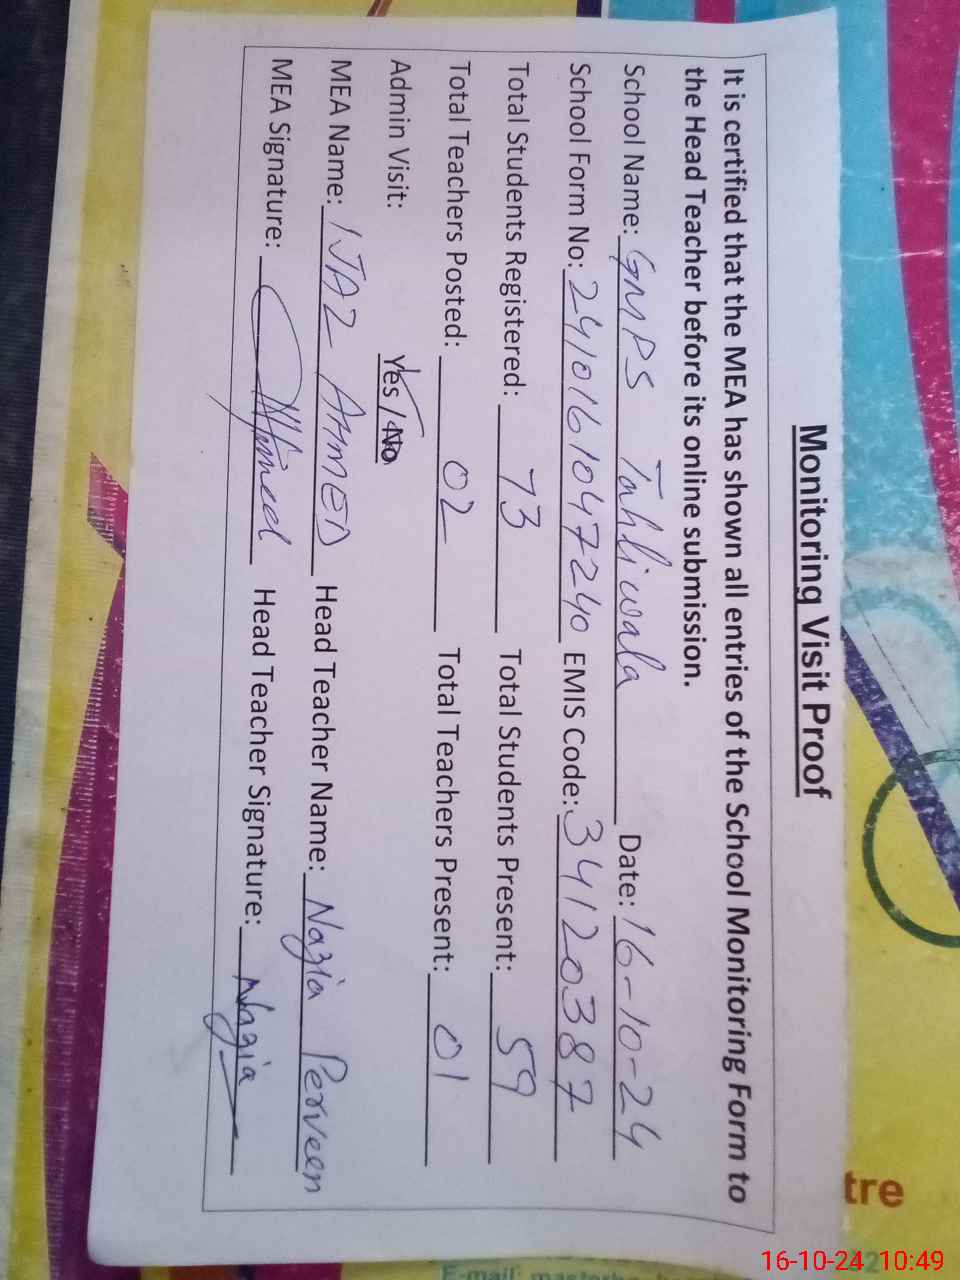 Monitoring Visit Proof
It is certified that the MEA has shown all entries of the School Monitoring Form to
the Head Teacher before its online submission.
School Name: GMPS Tahliwala Date: 16-10-24
School Form No: 2410161047240 EMIS Code: 34120387
Total Students Registered: 73 Total Students Present: 59
Total Teachers Posted: 02 Total Teachers Present: 01
Admin Visit: Yes / No
MEA Name: IJAZ AHMED Head Teacher Name: Nazia Perveen
MEA Signature: Ahmed Head Teacher Signature: Nazia
tre
E-mail:
16-10-24 10:49